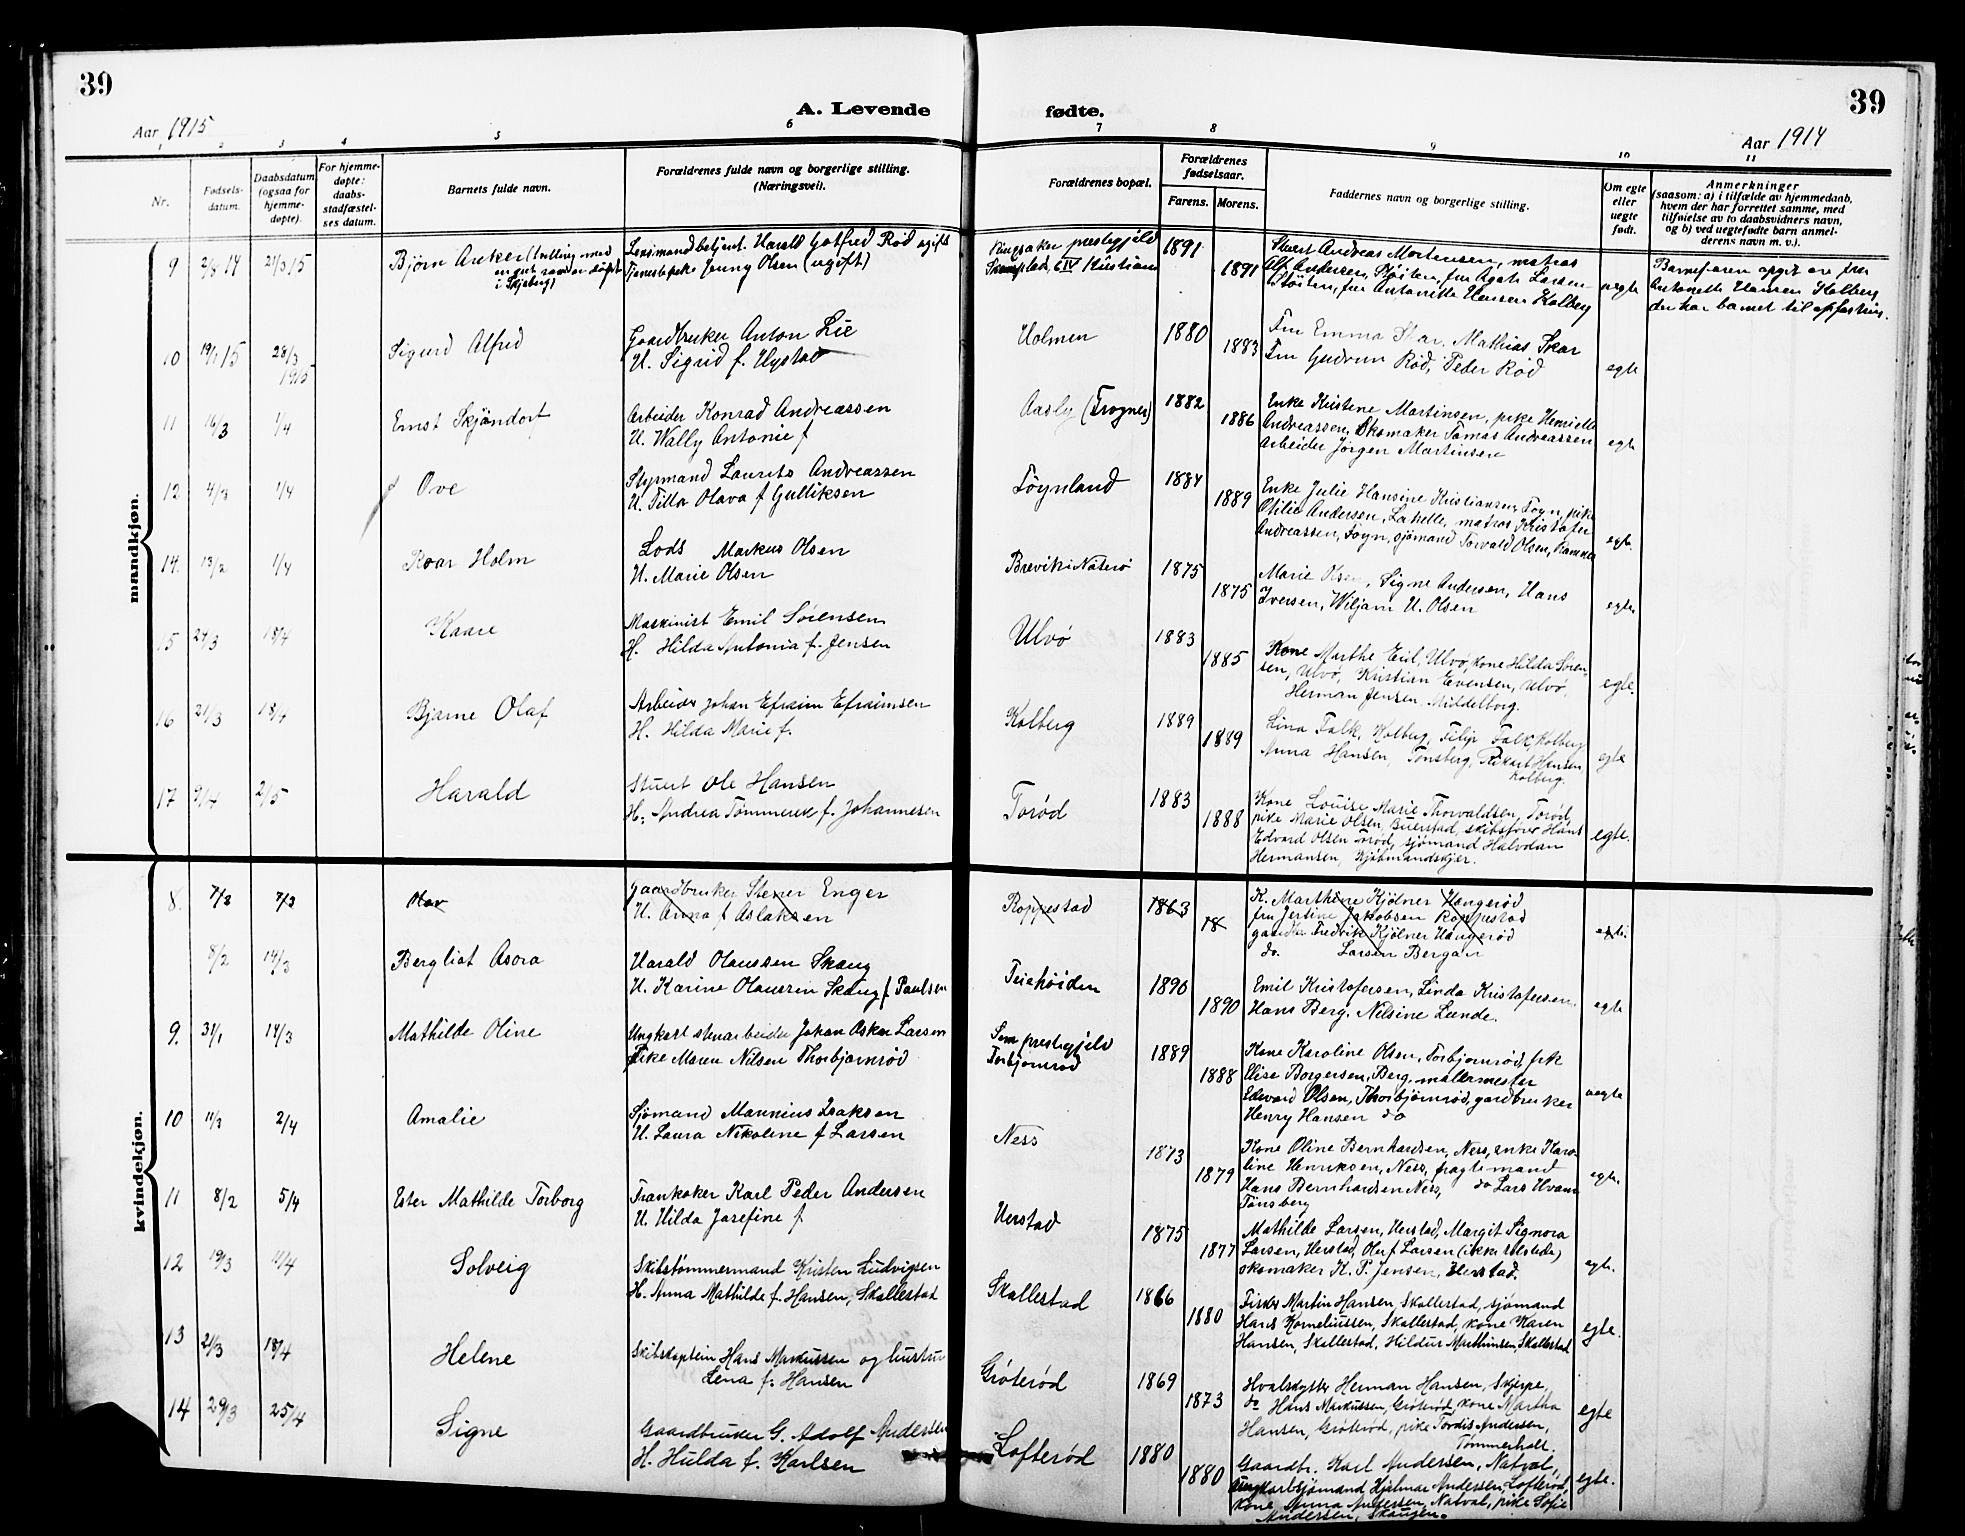 39
A. Levende
fødte.
39
Aar 1915
Aar 1914
1 2 3 4 5 6 7 8 9 10 11
Nr.
Fødsels-
datum.
Daabsdatum
(ogsaa for
hjemme-
døpte).
For hjemme-
døpte:
daabs-
stadfæstel-
ses datum.
Barnets fulde navn.
Forældrenes fulde navn og borgerlige stilling.
(Næringsvei).
Forældrenes bopæl.
Forældrenes
fødselsaar.
Farens. Morens.
Faddernes navn og borgerlige stilling.
Om egte
eller
uegte
født.
Anmerkninger
(saasom: a) i tilfælde av hjemmedaab,
hvem der har forrettet samme, med
tilføielse av to daabsvidners navn,
og b) ved uegtefødte barn anmel-
derens navn m. v.).
mandkjøn.
9 2/8 14 21/3 15
Bjørn Anker (tvilling med
i Skjeberg)
Lensmandbetjent Harald Gotfred Rød ugift
Tjenestepike Jenny Olsen (ugift)
Ringsaker prestegjeld
Kristiania
1891
1891
Stuert Andreas Mortensen, matros
Alf Andersen, Støiten, fru Agate Larsen
Støiten, fru Antonette Hansen Kolberg
uegte
Barnefaren opgit av fru
Antonette Hansen Kolberg
der har barnet til opfostring.
10 19/1 15 28/3 1915
Sigurd Alfred
Gaardbruker Anton Lie
H. Sigrid f. Hystad
Holmen
1880
1883
Fru Emma Skar, Mathias Skar
Fru Gudrun Rød, Peder Rød
egte
11 16/3 1/4
Ernst Skjøndorf
Arbeider Konrad Andreassen
H. Wally Antonie f
Aasly (Trogner)
1882
1886
Enke Kristene Martinsen, pike Henriette
Andreassen, Skomaker Tomas Andreassen
Arbeider Jørgen Martinsen
egte
12 4/3 1/4
Ove
Styrmand Laurits Andreassen
H. Tilla Olava f Gulliksen
Føynland
1884
1889
Enke Julie Hansine Kristiansen, Føyn, pike
Otilie Andersen, Lahelle, matros Kristofer
Andreassen, Føyn, sjømand Torvald Olsen, Ramnes
egte.
14. 13/2 1/4
Roar Holm
Lods Markus Olsen
H. Marie Olsen
Brevik i Nøterø
1875
1875
Marie Olsen, Signe Andersen, Hans
Iversen, Wiljam H. Olsen
egte
15 24/3 18/4
Kaare
Maskinist Emil Sørensen
H. Hilda Antonia f. Jensen
Ulvø
1883
1885
Kone Marthe Eid, Ulvø, kone Hilda Søren-
sen, Ulvø, Kristian Evensen, Ulvø,
Herman Jensen Middelborg.
egte.
16 21/3 18/4
Bjarne Olaf
Arbeider Johan Efraim Efraimsen
H. Hilda Marie f.
Kolberg
1889
1889
Lina Falk, Kolberg, Filip Falk, Kolberg
Anna Hansen, Tønsberg, Rikart Hansen
Kolberg.
egte
17 9/4 2/5
Harald
Stuert Ole Hansen
H. Andrea Tømmerek f. Johannesen
Torød
1883
1888
Kone Louise Marie Thorvaldsen, Torød,
pike Marie Olsen, Buerstad, skibsfører Hans
Edvard Olsen Torød, sjømand Halvdan
Hermansen, Kjøbmandskjær.
egte.
kvindekjøn.
8. 7/3 7/3
Olav
Gaardbruker Stener Enger
H. Anna f Aslaksen
Roppestad
1863
18
K. Marthene Kjølner Haugerød
fru Jertine Jakobsen Roppestad
gaardbr Fredrik Kjølner Haugerød
do. Larsen Bergan
egte.
8/2 14/3
Bergliot Asora
Harald Olaussen Skaug
H. Karine Olaussen Skaug f Paulsen
Teiehøiden
1890
1890
Emil Kristofersen, Linda Kristofersen
Hans Berg, Nilsine Lunde.
egte
9. 31/1 14/3
Mathilde Oline
Ungkarl stenarbeider Johan Oskar Larsen
Pike Maren Nilsen Thorbjørnrød
Sem prestegjeld
Torbjørnrød
1889
1888
Kone Karoline Olsen, Torbjørnrød, pik
Elise Borgersen, Berg, mallermester
Edvard Olsen, Thorbjørnrød, gardbruker
Henry Hansen do
uegte
10 11/3 2/4
Amalie
Sjømand Maurinius Isaksen
H. Laura Nikoline f Larsen
Ness
1873
1879
Kone Oline Bernhardsen, Ness, enke Karo-
line Henriksen, Ness, fragtemand
Hans Bernhardsen Ness, do Lars Hvam
Tønsberg
egte.
11 8/2 5/4
Ester Mathilde Torborg
Trankoker Karl Peder Andersen
H. Hilda Josefine f
Herstad
1875
1877
Mathilde Larsen, Herstad, Margit Signora
Larsen, Herstad, Oluf Larsen (ikke tilstede)
skomaker K. P. Jensen, Herstad.
egte.
12 19/3 11/4
Solveig
Skibstømmermand Kristen Ludvigsen
H. Anna Mathilde f. Hansen, Skallestad
Skallestad
1866
1880
Fisker Martin Hansen, Skallestad, sjømand
Hans Korneliussen, Skallestad, kone Karen
Hansen, Skallestad, Hildur Marthinsen, Skallestad
egte.
13 21/3 18/4
Helene
Skibskaptein Hans Markussen og hustru
Lena f. Hansen
Grøterød
1869
1873
Hvalskytter Herman Hansen, Skjerpe,
do Hans Markussen, Grøterød, kone Martha
Hansen, Grøterød, pike Tordis Andersen,
Tømmerholt.
egte
14 29/3 25/4
Signe
Gaardbruker G. Adolf Andersen
H. Hulda f. Karlsen
Lofterød
1880
1880
Gaardbr. Karl Andersen, Natval,
ungkarl sjømand Hjalmar Andersen, Lofterød,
kone Anna Andersen, Natval, pike Sofie
Andersen, Skaugen.
egte.